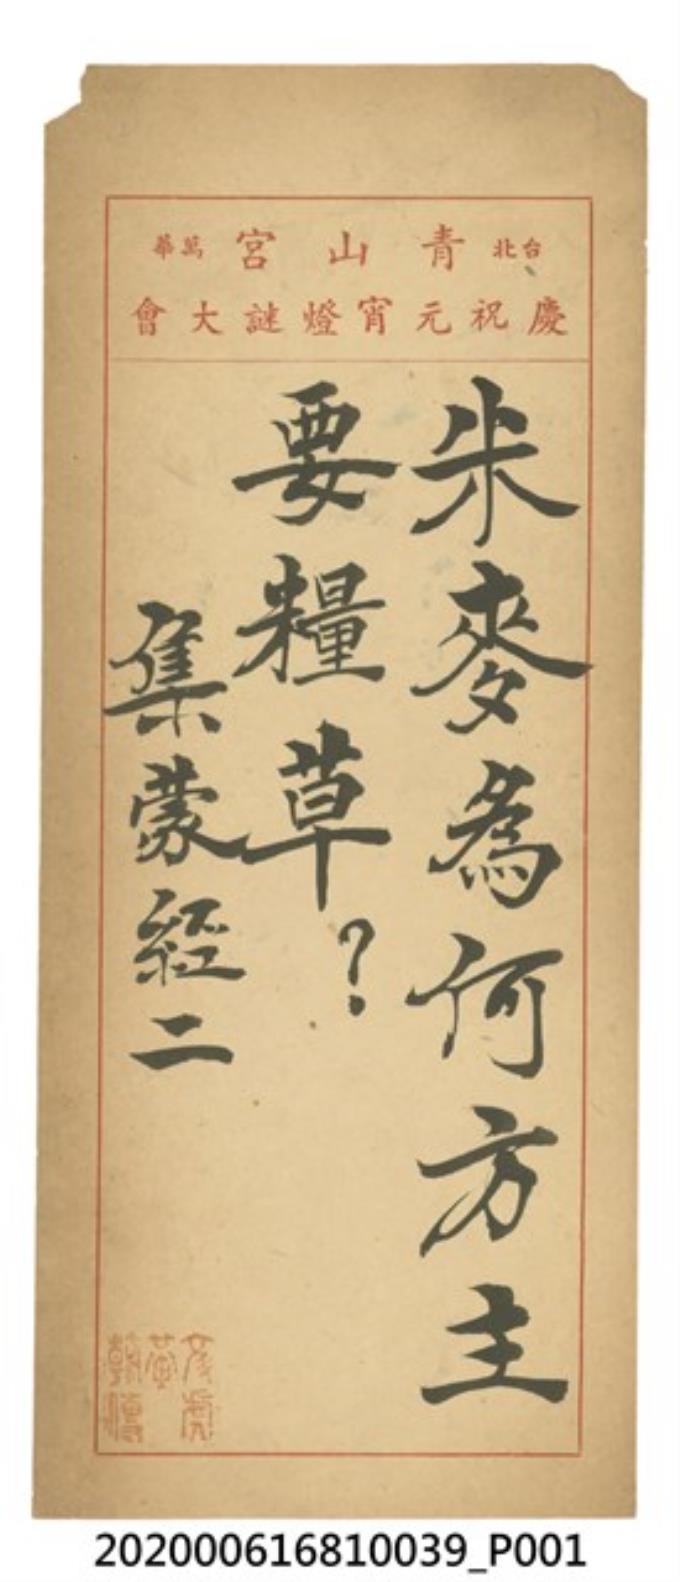 台北 青山宮 萬華
慶祝元宵燈謎大會
米麥為何方主
要糧草？
集蒙經二
202000616810039_P001